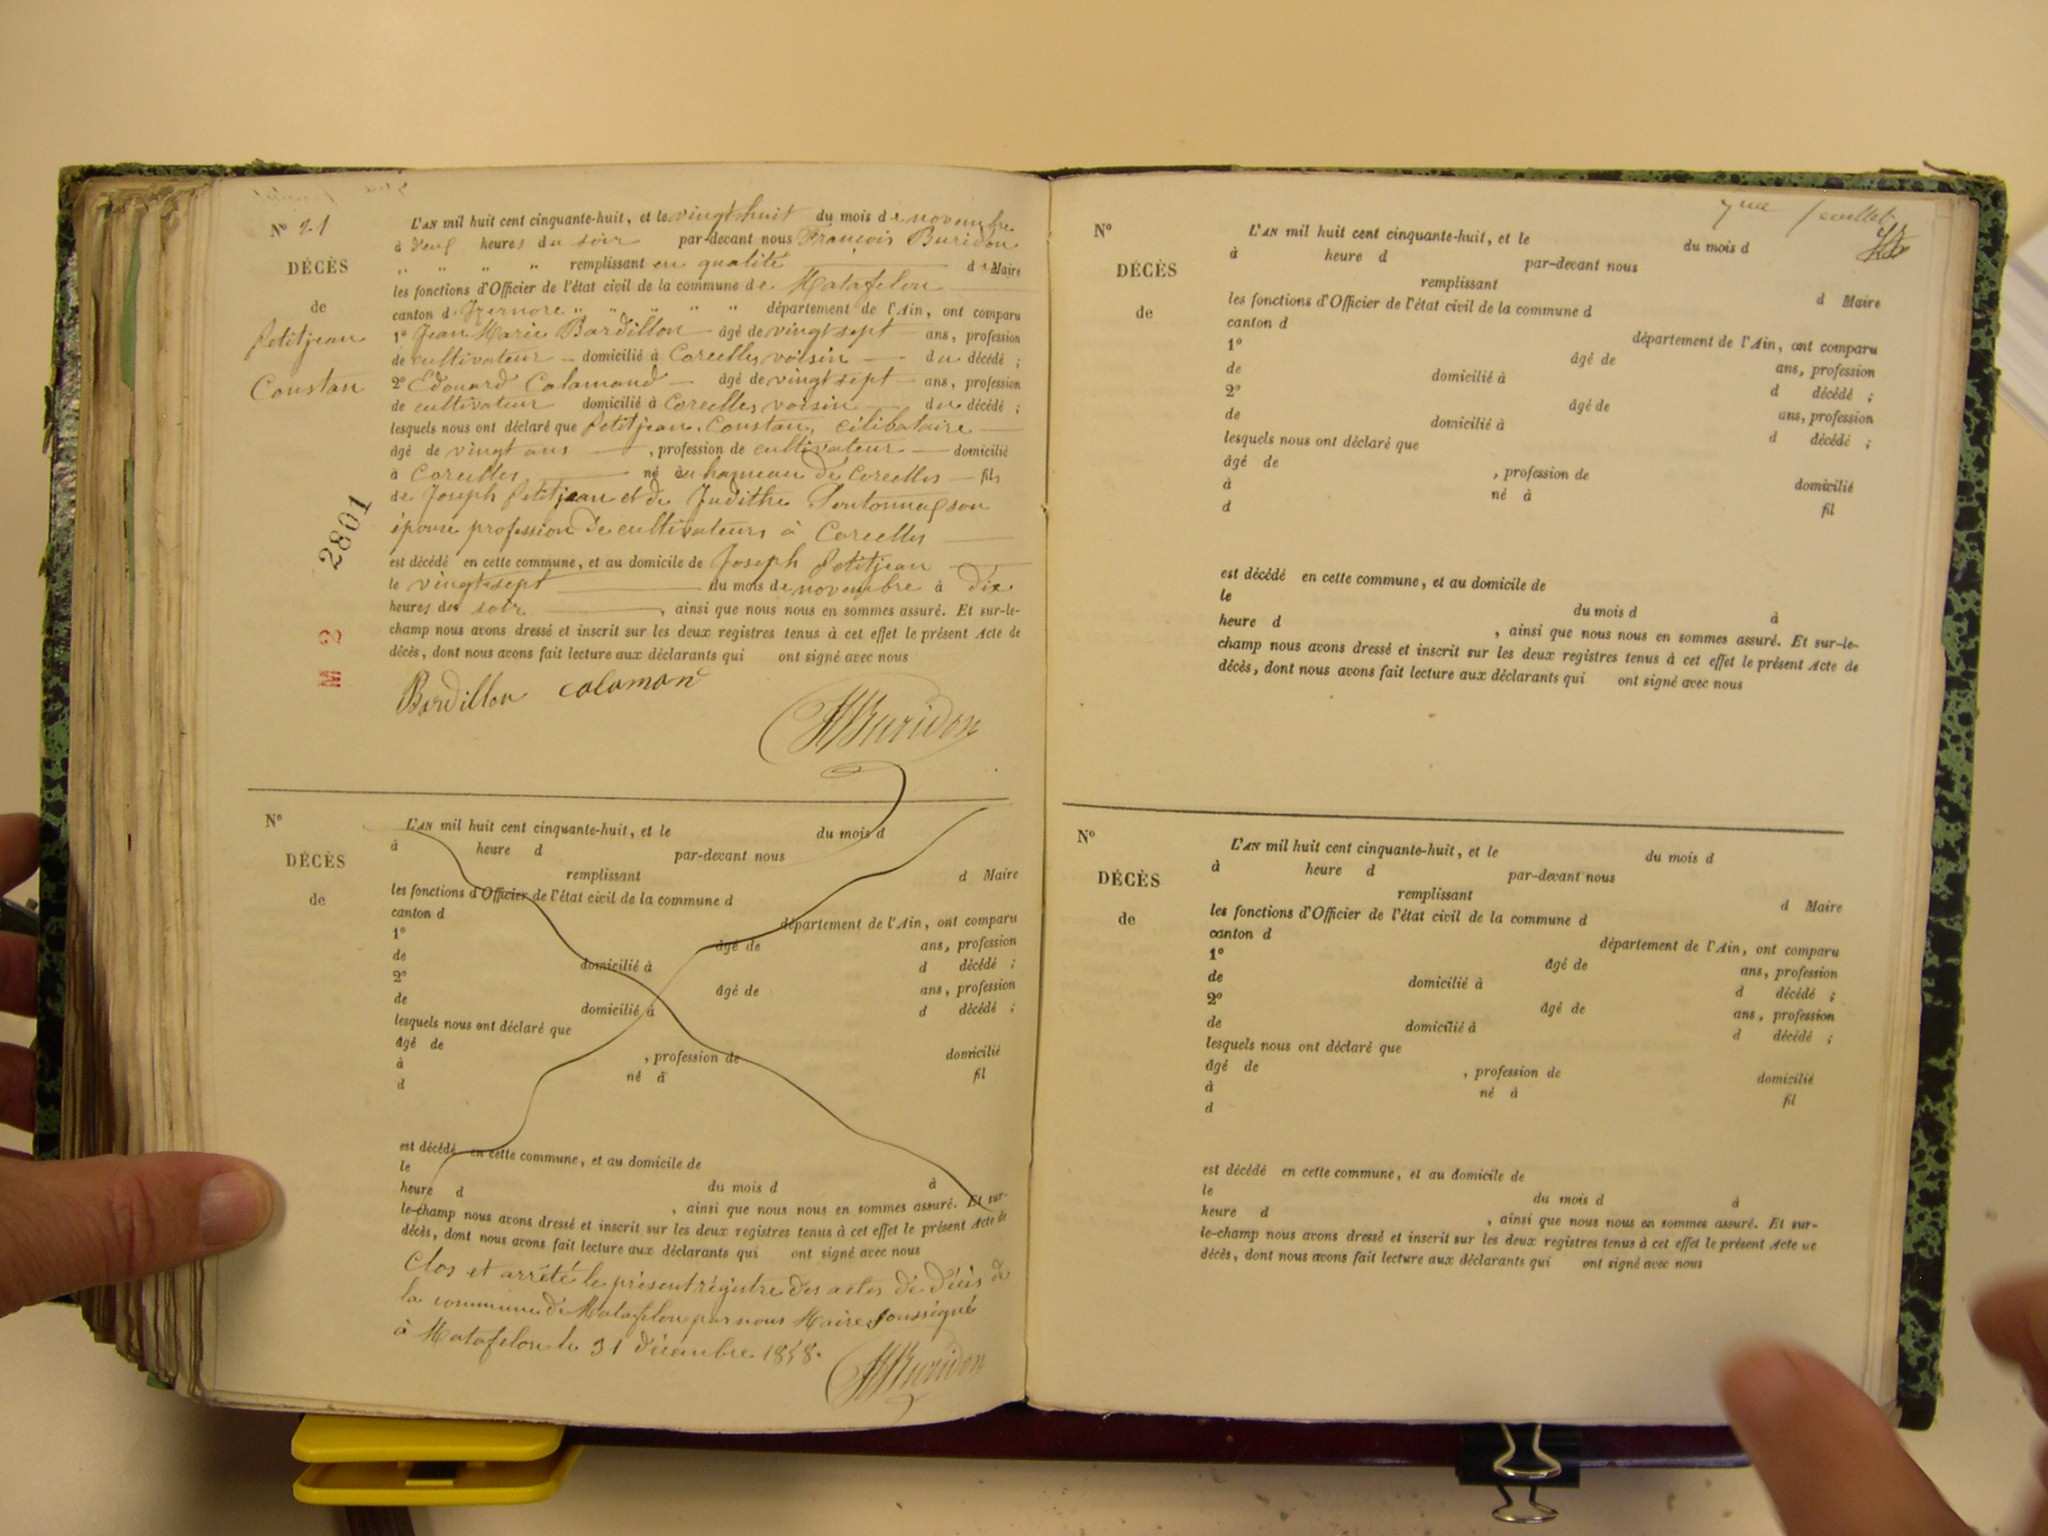 N° 21
DÉCÈS
de
Petitjean
Constan
L'AN mil huit cent cinquante-huit, et le vingt huit du mois de novembre
à neuf heures du soir par-devant nous François Buridon
" " " " remplissant en qualité de Maire
les fonctions d'Officier de l'état civil de la commune de Matafelon
canton d'Izernore " " " " " département de l'Ain, ont comparu
1° Jean Marie Bardillon âgé de vingt sept ans, profession
de cultivateur domicilié à Corcelles voisin du décédé ;
2° Edouard Calamand âgé de vingt sept ans, profession
de cultivateur domicilié à Corcelles voisin du décédé ;
lesquels nous ont déclaré que Petitjean, Constan, célibataire
âgé de vingt ans , profession de cultivateur domicilié
à Corcelles né au hameau de Corcelles fils
de Joseph Petitjean et de Judithe son
épouse profession de cultivateurs à Corcelles
est décédé en cette commune, et au domicile de Joseph Petitjean
le vingt sept du mois de novembre à dix
heures du soir , ainsi que nous nous en sommes assuré. Et sur-le-
champ nous avons dressé et inscrit sur les deux registres tenus à cet effet le présent Acte de
décès, dont nous avons fait lecture aux déclarants qui ont signé avec nous
Bardillon calaman
Buridon
2801
M 2
N°
DÉCÈS
de
L'AN mil huit cent cinquante-huit, et le du mois d
à heure d par-devant nous
remplissant d Maire
les fonctions d'Officier de l'état civil de la commune d
canton d département de l'Ain, ont comparu
1° âgé de ans, profession
de domicilié à d décédé ;
2° âgé de ans, profession
de domicilié à d décédé ;
lesquels nous ont déclaré que
âgé de , profession de domicilié
à né à fil
d
est décédé en cette commune, et au domicile de
le du mois d à
heure d , ainsi que nous nous en sommes assuré. Et sur-
le-champ nous avons dressé et inscrit sur les deux registres tenus à cet effet le présent Acte de
décès, dont nous avons fait lecture aux déclarants qui ont signé avec nous
Clos et arrêté le présent régistre des actes de décès de
la commune de Matafelon par nous Maire soussigné
à Matafelon le 31 décembre 1858.
Buridon
7me feuillet
N°
DÉCÈS
de
L'AN mil huit cent cinquante-huit, et le du mois d
à heure d par-devant nous
remplissant d Maire
les fonctions d'Officier de l'état civil de la commune d
canton d département de l'Ain, ont comparu
1° âgé de ans, profession
de domicilié à d décédé ;
2° âgé de ans, profession
de domicilié à d décédé ;
lesquels nous ont déclaré que
âgé de , profession de domicilié
à né à fil
d
est décédé en cette commune, et au domicile de
le du mois d à
heure d , ainsi que nous nous en sommes assuré. Et sur-le-
champ nous avons dressé et inscrit sur les deux registres tenus à cet effet le présent Acte de
décès, dont nous avons fait lecture aux déclarants qui ont signé avec nous
N°
DÉCÈS
de
L'AN mil huit cent cinquante-huit, et le du mois d
à heure d par-devant nous
remplissant d Maire
les fonctions d'Officier de l'état civil de la commune d
canton d département de l'Ain, ont comparu
1° âgé de ans, profession
de domicilié à d décédé ;
2° âgé de ans, profession
de domicilié à d décédé ;
lesquels nous ont déclaré que
âgé de , profession de domicilié
à né à fil
d
est décédé en cette commune, et au domicile de
le du mois d à
heure d , ainsi que nous nous en sommes assuré. Et sur-
le-champ nous avons dressé et inscrit sur les deux registres tenus à cet effet le présent Acte de
décès, dont nous avons fait lecture aux déclarants qui ont signé avec nous